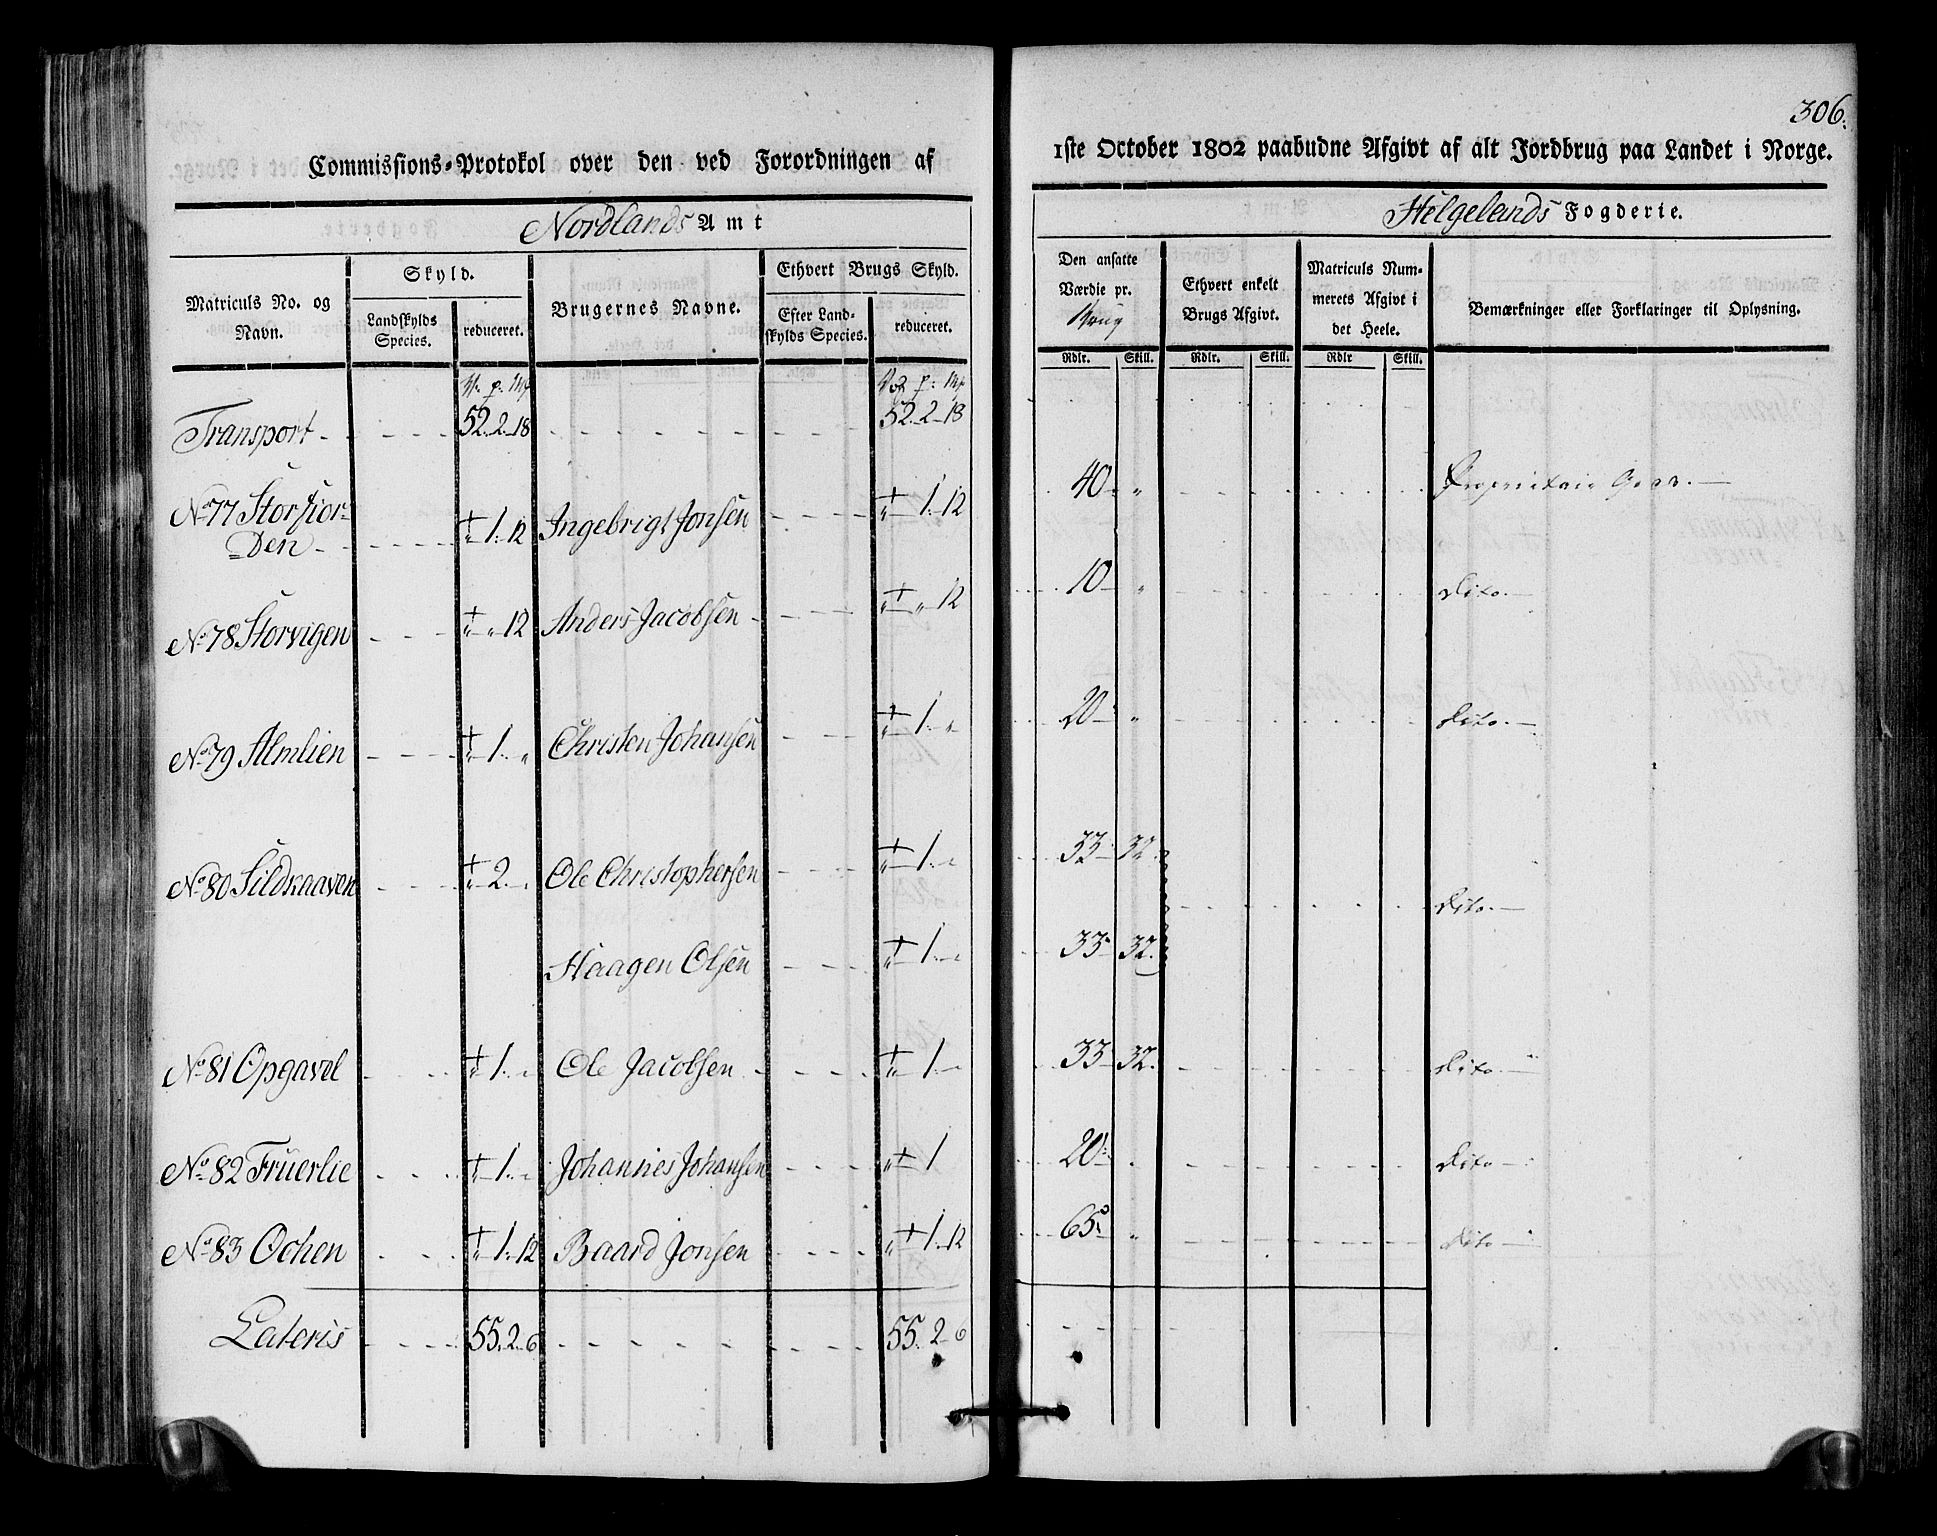 306.
Commissions-Protokol over den ved Forordningen af
1ste October 1802 paabudne Afgivt af alt Jordbrug paa Landet i Norge.
Nordlands Amt
Helgelands Fogderie.
Matriculs No. og Navn.
Skyld.
Landskylds Species.
reduceret.
Brugernes Navne.
Ethvert Brugs Skyld.
Efter Landskylds Species.
reduceret.
Den ansatte Værdie pr. Brug
Ethvert enkelt Brugs Afgivt.
Matriculs Nummerets Afgivt i det Heele.
Bemærkninger eller Forklaringer til Oplysning.
Rdlr. Skill. Rdlr. Skill. Rdlr Skill.
V. p: Mk Vog p: Mk
Transport 52. 2. 18 52. 2 18
No 77 Storfior=
=den 1. 12 Ingebrigt Jonsen 1. 12 40 " Proprietair Gods.
No 78 Storvigen " " 12 Anders Jacobsen " " 12 10 " dito.
No 79 Almlien " 1. " Christen Johansen " 1. " 20 " dito.
No 80 Sildhaaven " 2. " Ole Christophersen " 1. " 33 32. dito.
Haagen Olsen " 1. " 33 32.
No 81 Opgavel " 1. " Ole Jacobsen " 1. " 33 32. dito.
No 82 Fruerlie 1. " Johannes Johansen " 1 20 . dito
No 83 Ochen " 1. 12 Baard Jonsen " 1. 12 65 " dito
Lateris 55. 2. 6 55. 2 6